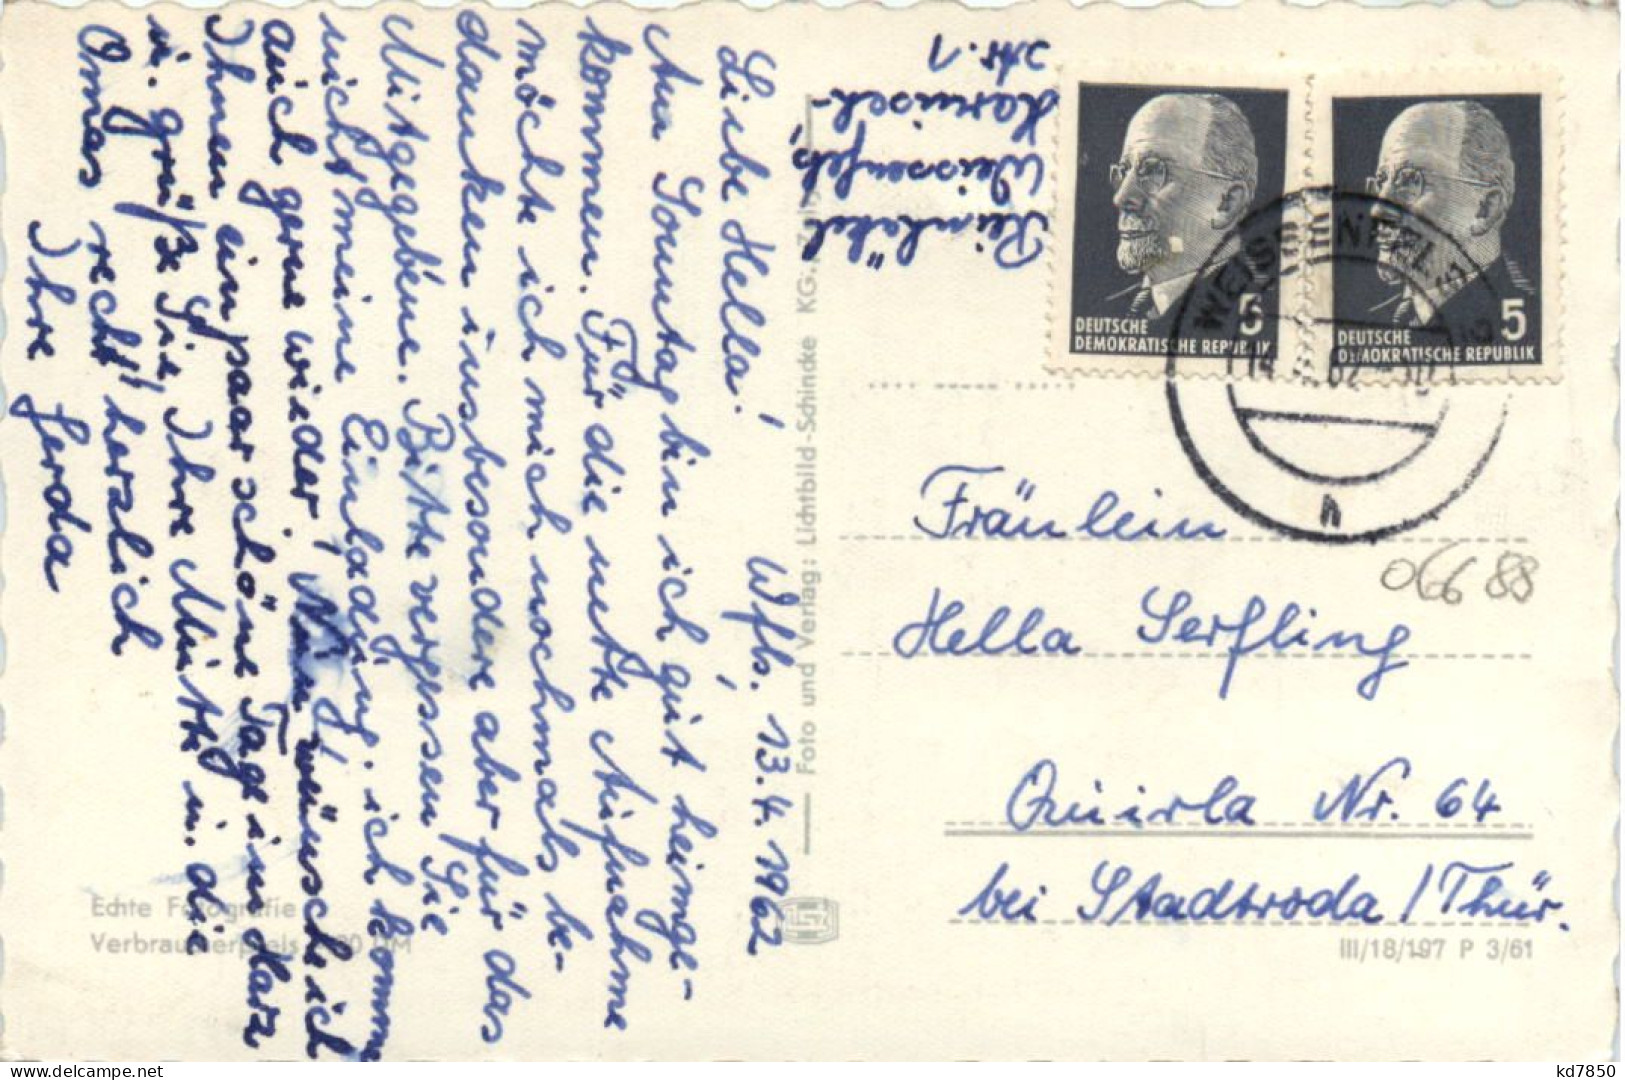 Liebe Hella!
Wfls. 13.4.1962
Am Sonntag bin ich gut heimge-
kommen. Für die nette Aufnahme
möchte ich mich nochmals be-
danken insbesondere aber für das
Mitgegebene. Bitte vergessen Sie
nicht meine Einladung, ich komme
auch gerne wieder! Nun wünsche ich
Ihnen ein paar schöne Tage im Harz
u. grüße Sie, Ihre Mutti u. die
Omas recht herzlich
Ihre Gerda
Weissenfels,
Harnisch-
Str. 1
Foto und Verlag: Lichtbild-Schincke KG. Z
Echte Fotografie
Verbraucherpreis DM
DEUTSCHE
DEMOKRATISCHE REPUBLIK
5
DEUTSCHE
DEMOKRATISCHE REPUBLIK
5
WEISSENFELS
h
Fräulein
06688
Hella Serfling
Quirla Nr. 64
bei Stadtroda / Thür.
III/18/197 P 3/61
delcampe.net
kd7850